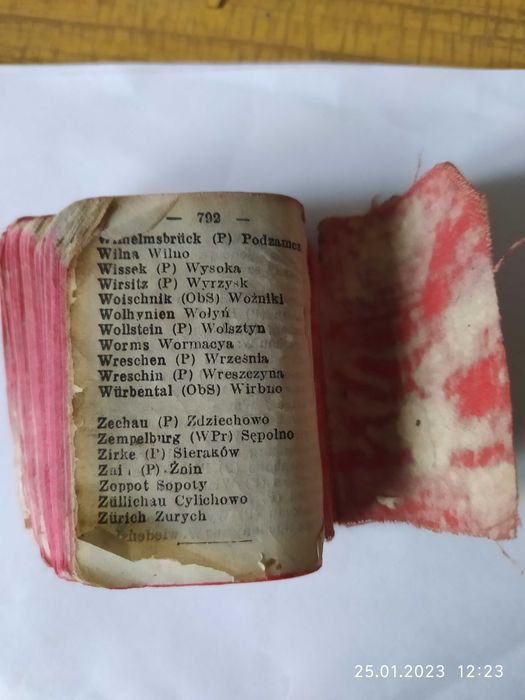 — 792 —
Wilhelmsbrück (P) Podzamcz
Wilna Wilno
Wissek (P) Wysoka
Wirsitz (P) Wyrzysk
Woischnik (ObS) Woźniki
Wolhynien Wołyń
Wollstein (P) Wolsztyn
Worms Wormacya
Wreschen (P) Września
Wreschin (P) Wreszczyna
Würbental (ObS) Wirbno
Zechau (P) Zdziechowo
Zempelburg (WPr) Sępolno
Zirke (P) Sieraków
(P) Żnin
Zoppot Sopoty
Züllichau Cylichowo
Zürich Zurych
25.01.2023 12:23